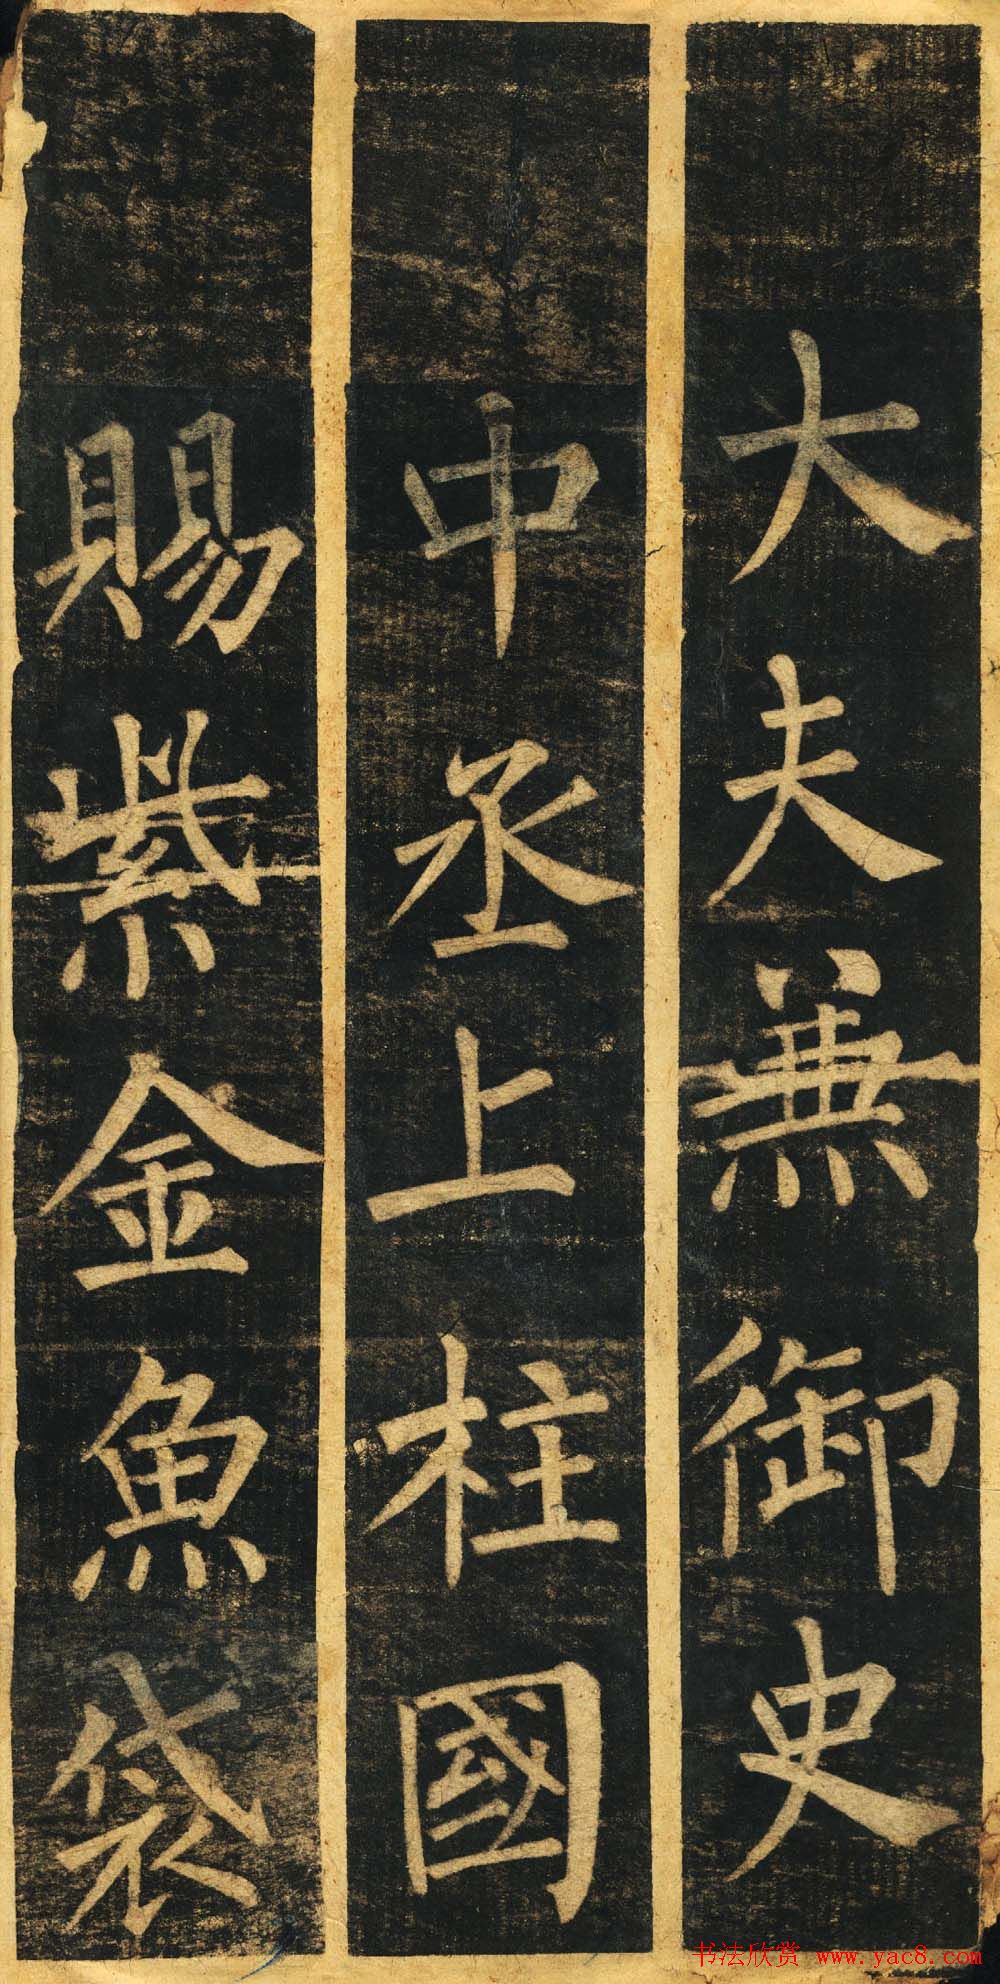 大夫兼御史
中丞上柱國
賜紫金魚袋
书法欣赏 www.yac8.com